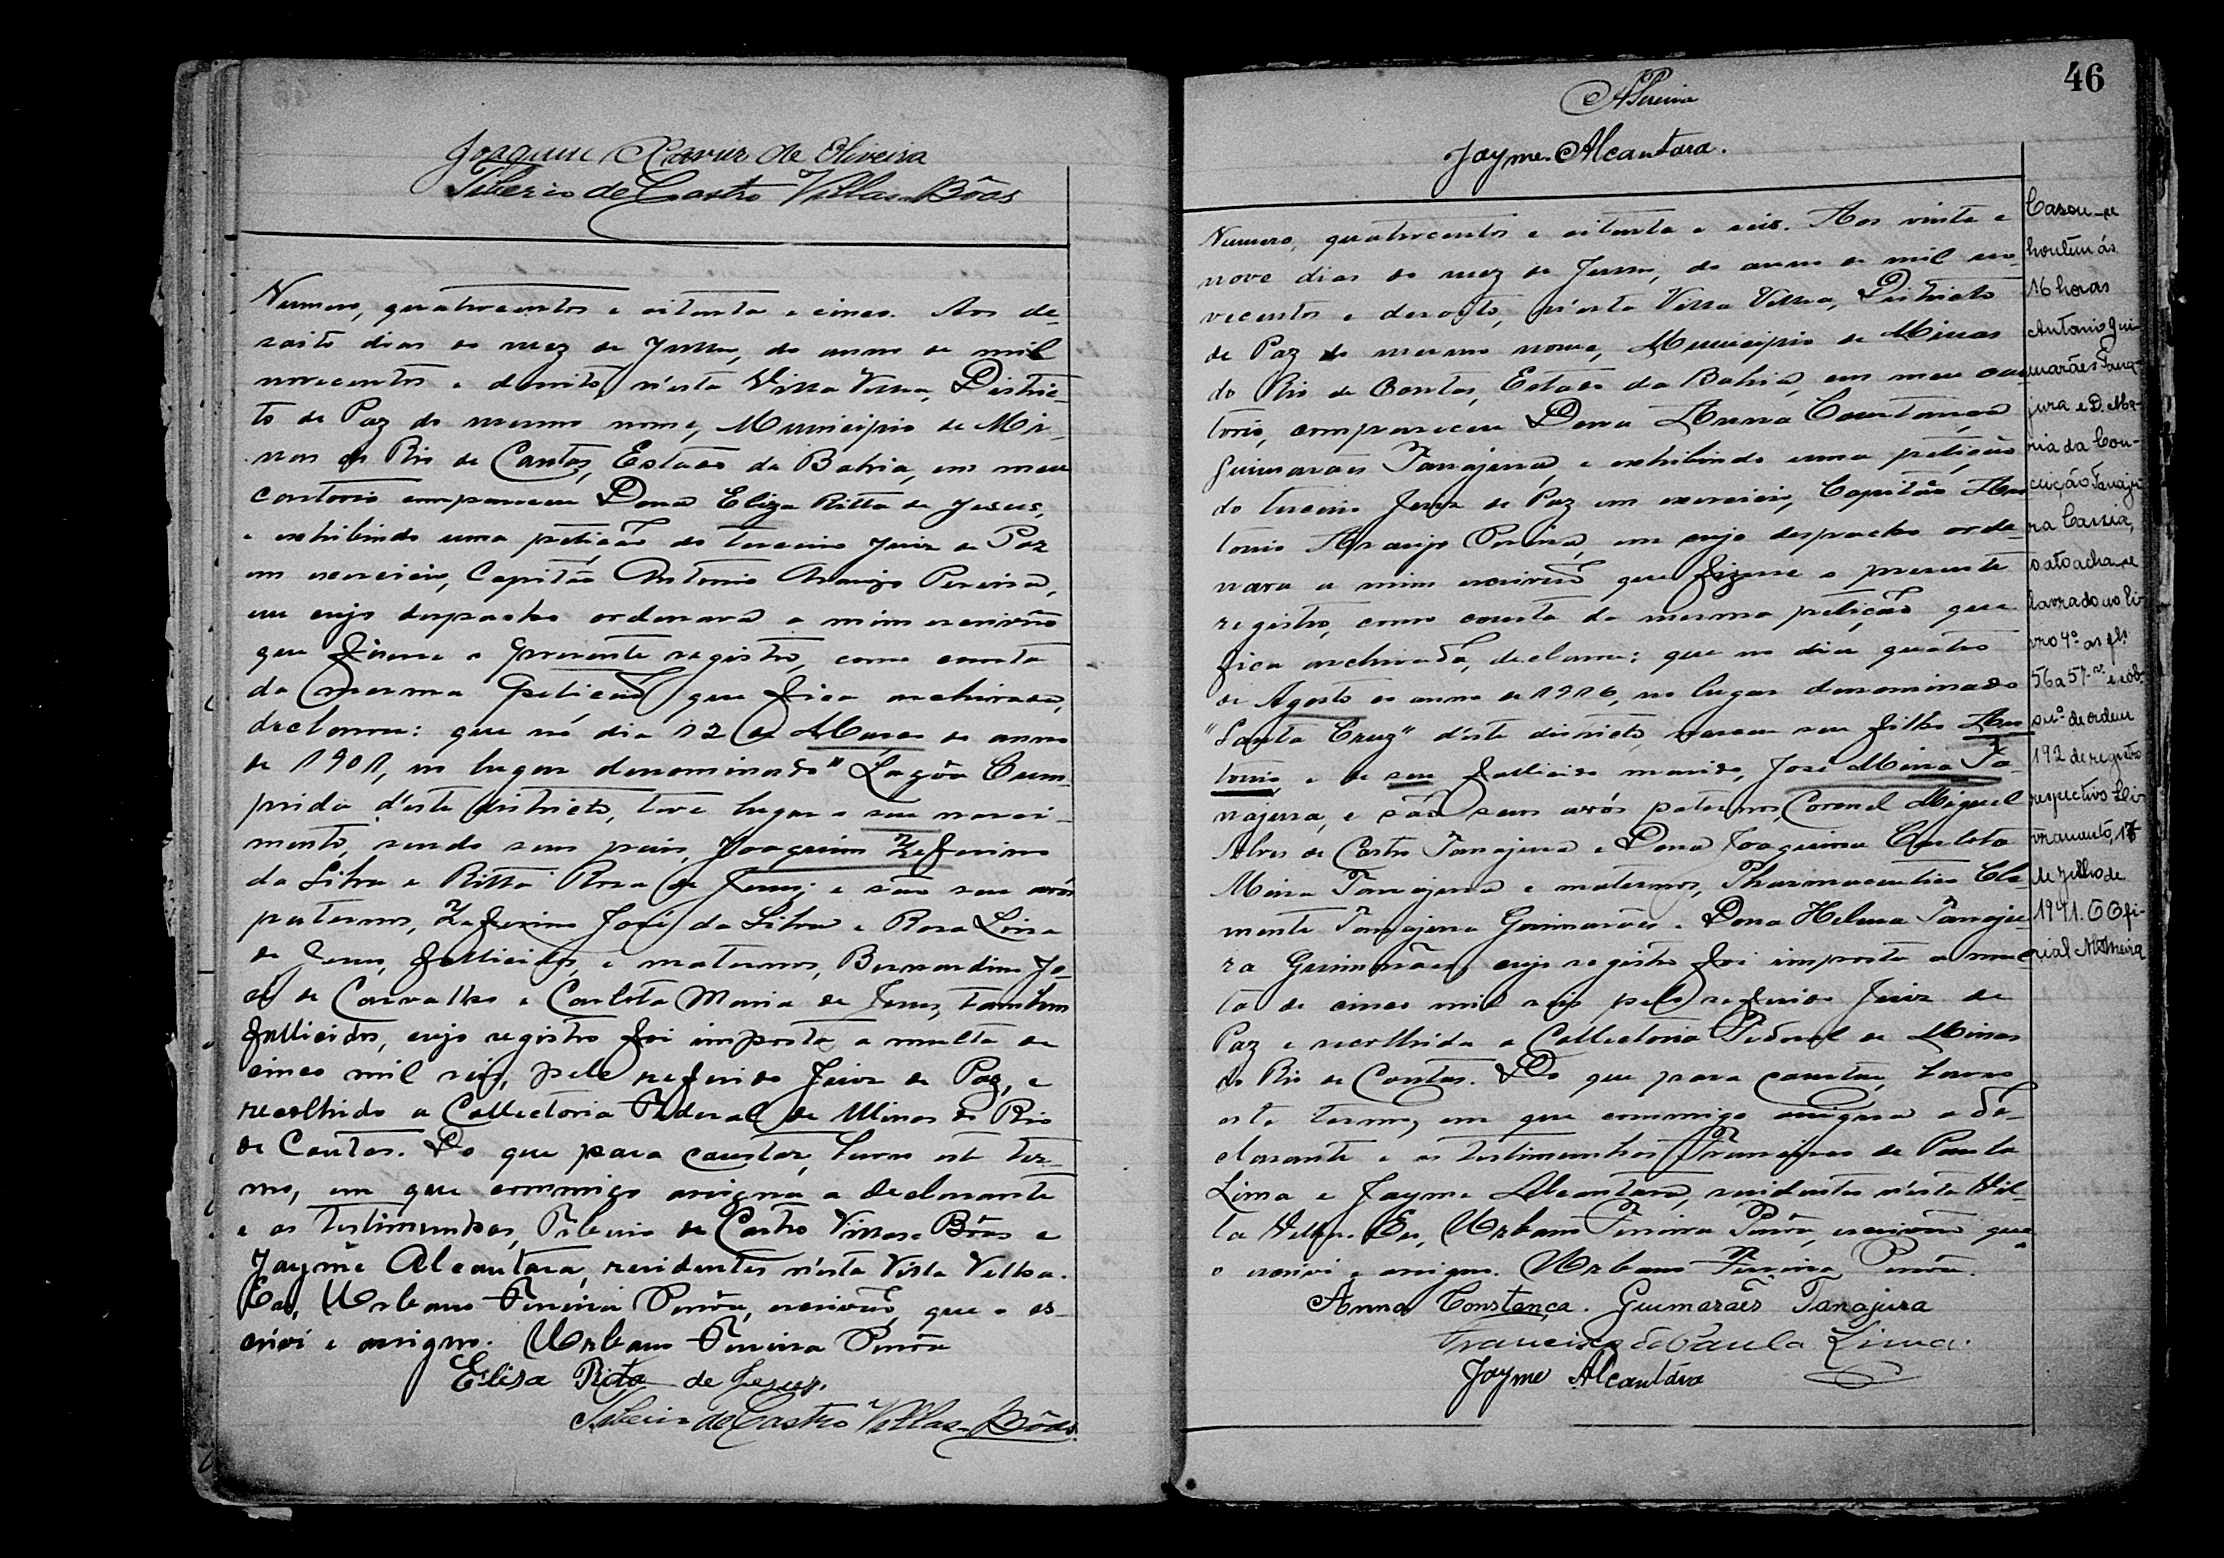 Joaquim Xavier de Oliveira
Tiberio de Castro Villas-Bôas
Numero, quatrocentos e oitenta e cinco. Aos de-
soito dias do mez de Junho, do anno de mil
novecentos e desoito, n'esta Villa Velha, Distric-
to de Paz do mesmo nome, Municipio de Mi-
nas do Rio de Contas, Estado da Bahia, em meu
cartorio compareceu Dona Eliza Ritta de Jesus,
e exhibindo uma petição do terceiro Juiz de Paz
em exercicio, Capitão Antonio Araujo Pereira,
em cujo despacho ordenara a mim escrivão
que fizesse o presente registro, como consta
da mesma petição que fica archivada,
declarou: que no dia 12 de Março do anno
de 1901, no lugar denominado "Lagôa Com-
prida d'este districto, teve lugar o seu nasci-
mento, sendo seus pais, Joaquim Zeferino
da Silva e Ritta Rosa de Jesus; e são seus avós
paternos, Zeferino José da Silva e Rosa Lina
de Jesus, fallecidos, e maternos, Bernardino Jo-
sé de Carvalho e Carlota Maria de Jesus, tambem
fallecidos, cujo registro foi imposta a multa de
cinco mil reis, pelo referido Juiz de Paz, e
recolhido a Collectoria Federal de Minas do Rio
de Contas. Do que para constar, lavro este ter-
mo, em que commigo assigna a declarante
e as testimunhas, Tiberio de Castro Villas-Bôas e
Jayme Alcantara, residentes n'esta Villa Velha.
Eu, Urbano Ferreira Pinto, escrivão, que o es-
crivi e assigno. Urbano Ferreira
Elisa Rita de Jesus.
Tiberio de Castro Villas-Bôas.
46
Jayme Alcantara.
Numero, quatrocentos e oitenta e seis. Aos vinte e
nove dias do mez de Junho, do anno de mil no-
vecentos e desoito, n'esta Villa Velha, Districto
de Paz do mesmo nome, Municipio de Minas
do Rio de Contas, Estado da Bahia, em meu car
torio, compareceu Dona Anna Constança
Guimarães Tanajura, e exhibindo uma petição
do terceiro Juiz de Paz em exercicio, Capitão An
tonio Araujo Pereira, em cujo despacho orde-
nara a mim escrivão que fizesse o presente
registro, como consta da mesma petição que
fica archivada, declarou: que no dia quatro
de Agosto do anno de 1916, no lugar denominado
"Santa Cruz" d'este districto, nasceu seu filho An
tonio, e de seu fallecido marido, José Meira Ta-
najura, e são seus avós paternos, Coronel Miguel
Alves de Castro Tanajura e Dona Joaquina Carlota
Meira Tanajura e maternos, Pharmaceutico Cle
mente Tanajura Guimarães e Dona Helena Tanaju-
ra Guimarães, cujo registro foi imposta a mul-
ta de cinco mil reis pelo referido Juiz de
Paz e recolhida a Collectoria Federal de Minas
do Rio de Contas. Do que para constar, lavro
este termo, em que commigo assigna a de-
clarante e as testimunhas Francisco de Paula
Lima e Jayme Alcantara, residentes n'esta Vil-
la Velha. Eu, Urbano Ferreira, escrivão que
o escrivi e assigno. Urbano Ferreira
Anna Constança. Guimarães Tanajura
Francisco de Paula Lima.
Jayme Alcantára
Casou-se
hontem ás
16 horas
Antonio Gui-
marães Tana-
jura e D. Ma-
ria da Con-
ceição Tanaju-
ra Cassia,
o ato acha-se
lavrado no li-
vro 4º as fls
56 a 57 e sob
nº de ordem
192 de registro
respectivo Li-
vramento, 17
de Julho de
1941. O Ofi-
cial